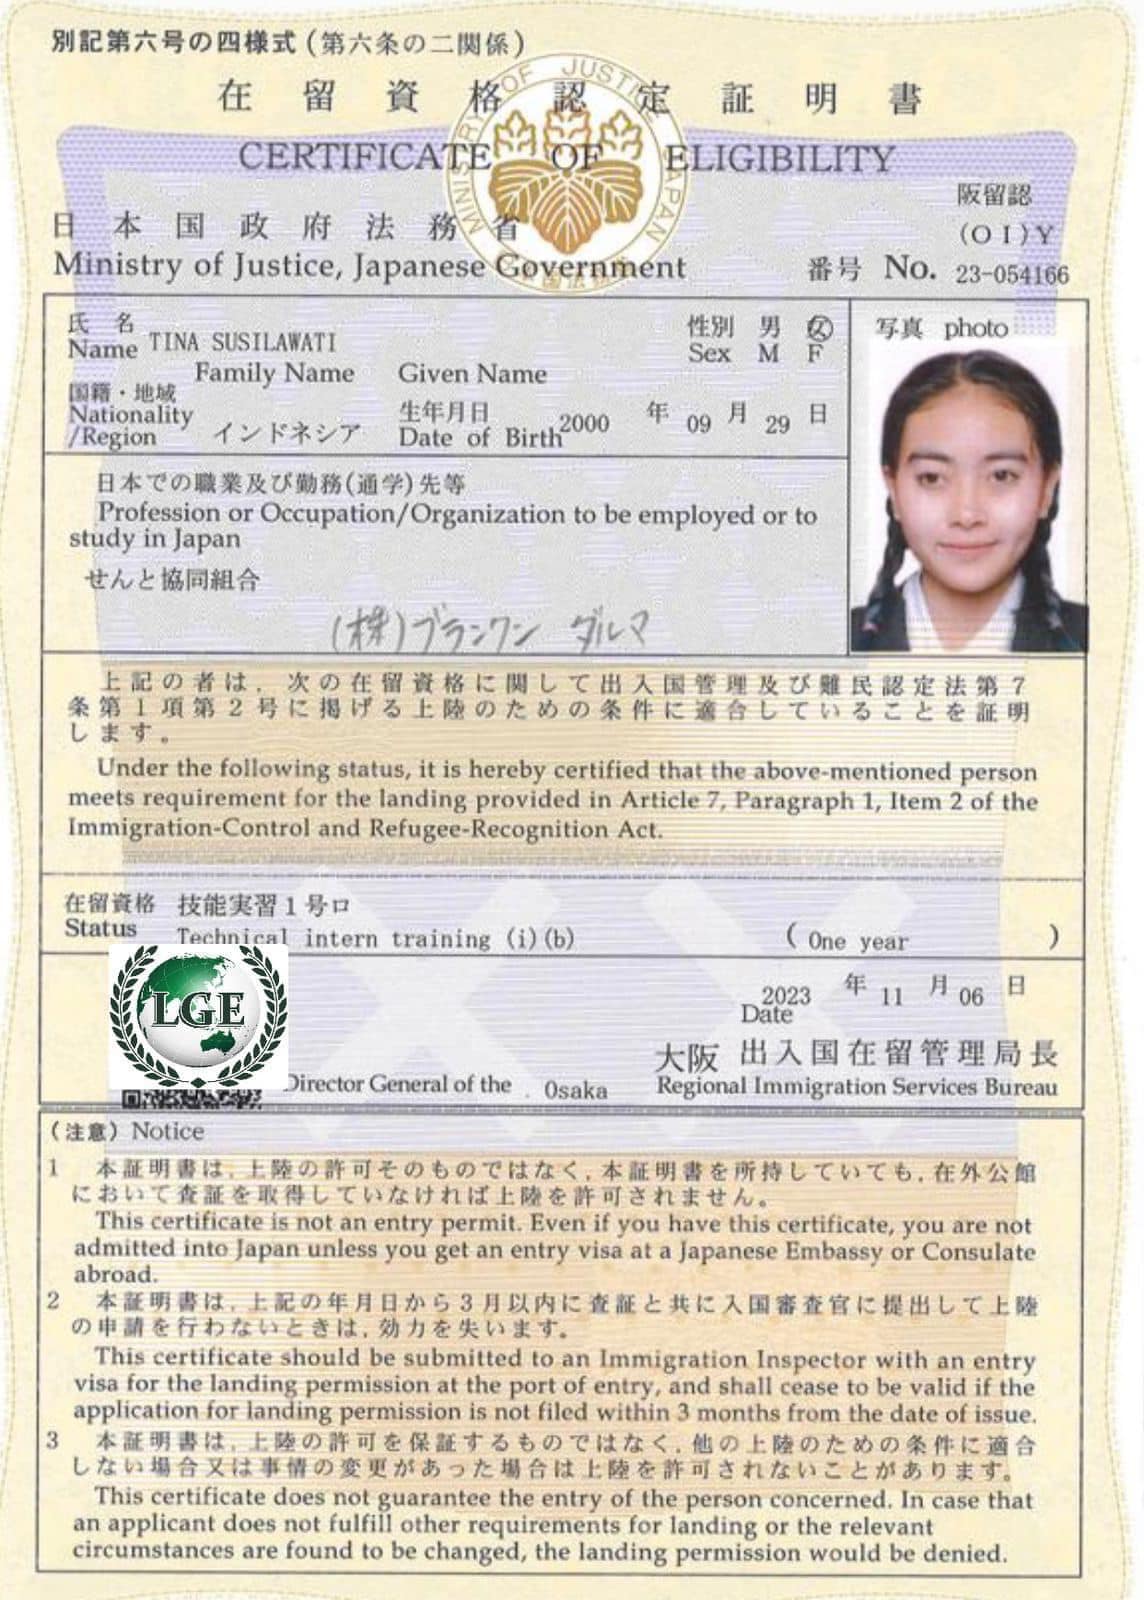 別記第六号の四様式(第六条の二関係)
在留資格認定証明書
CERTIFICATE OF ELIGIBILITY
MINISTRY OF JUSTICE JAPAN
阪留認
日本国政府法務省
(OI)Y
Ministry of Justice, Japanese Government
番号 No. 23-054166
氏名
Name TINA SUSILAWATI
Family Name Given Name
性別 男 女
Sex M F
写真 photo
国籍・地域
Nationality
/Region インドネシア
生年月日
Date of Birth 2000 年 09 月 29 日
日本での職業及び勤務(通学)先等
Profession or Occupation/Organization to be employed or to
study in Japan
せんと協同組合
(株)ブランワン ダルマ
上記の者は,次の在留資格に関して出入国管理及び難民認定法第7
条第1項第2号に掲げる上陸のための条件に適合していることを証明
します。
Under the following status, it is hereby certified that the above-mentioned person
meets requirement for the landing provided in Article 7, Paragraph 1, Item 2 of the
Immigration-Control and Refugee-Recognition Act.
在留資格 技能実習1号ロ
Status Technical intern training (i)(b) ( One year )
LGE
2023 年 11 月 06 日
Date
大阪 出入国在留管理局長
Director General of the Osaka Regional Immigration Services Bureau
(注意) Notice
1 本証明書は,上陸の許可そのものではなく,本証明書を所持していても,在外公館
において査証を取得していなければ上陸を許可されません。
This certificate is not an entry permit. Even if you have this certificate, you are not
admitted into Japan unless you get an entry visa at a Japanese Embassy or Consulate
abroad.
2 本証明書は,上記の年月日から3月以内に査証と共に入国審査官に提出して上陸
の申請を行わないときは,効力を失います。
This certificate should be submitted to an Immigration Inspector with an entry
visa for the landing permission at the port of entry, and shall cease to be valid if the
application for landing permission is not filed within 3 months from the date of issue.
3 本証明書は,上陸の許可を保証するものではなく,他の上陸のための条件に適合
しない場合又は事情の変更があった場合は上陸を許可されないことがあります。
This certificate does not guarantee the entry of the person concerned. In case that
an applicant does not fulfill other requirements for landing or the relevant
circumstances are found to be changed, the landing permission would be denied.